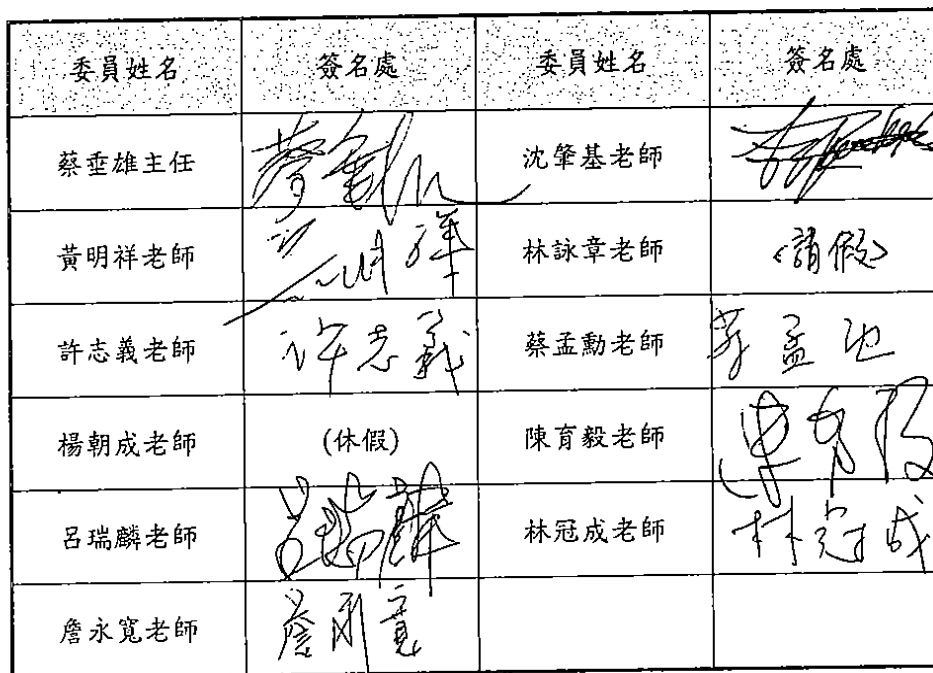 委員姓名 簽名處 委員姓名 簽名處
蔡垂雄主任 沈肇基老師
黃明祥老師 林詠章老師 <請假>
許志義老師 许志義 蔡孟勳老師
楊朝成老師 (休假) 陳育毅老師
呂瑞麟老師 呂瑞麟 林冠成老師 林冠成
詹永寬老師